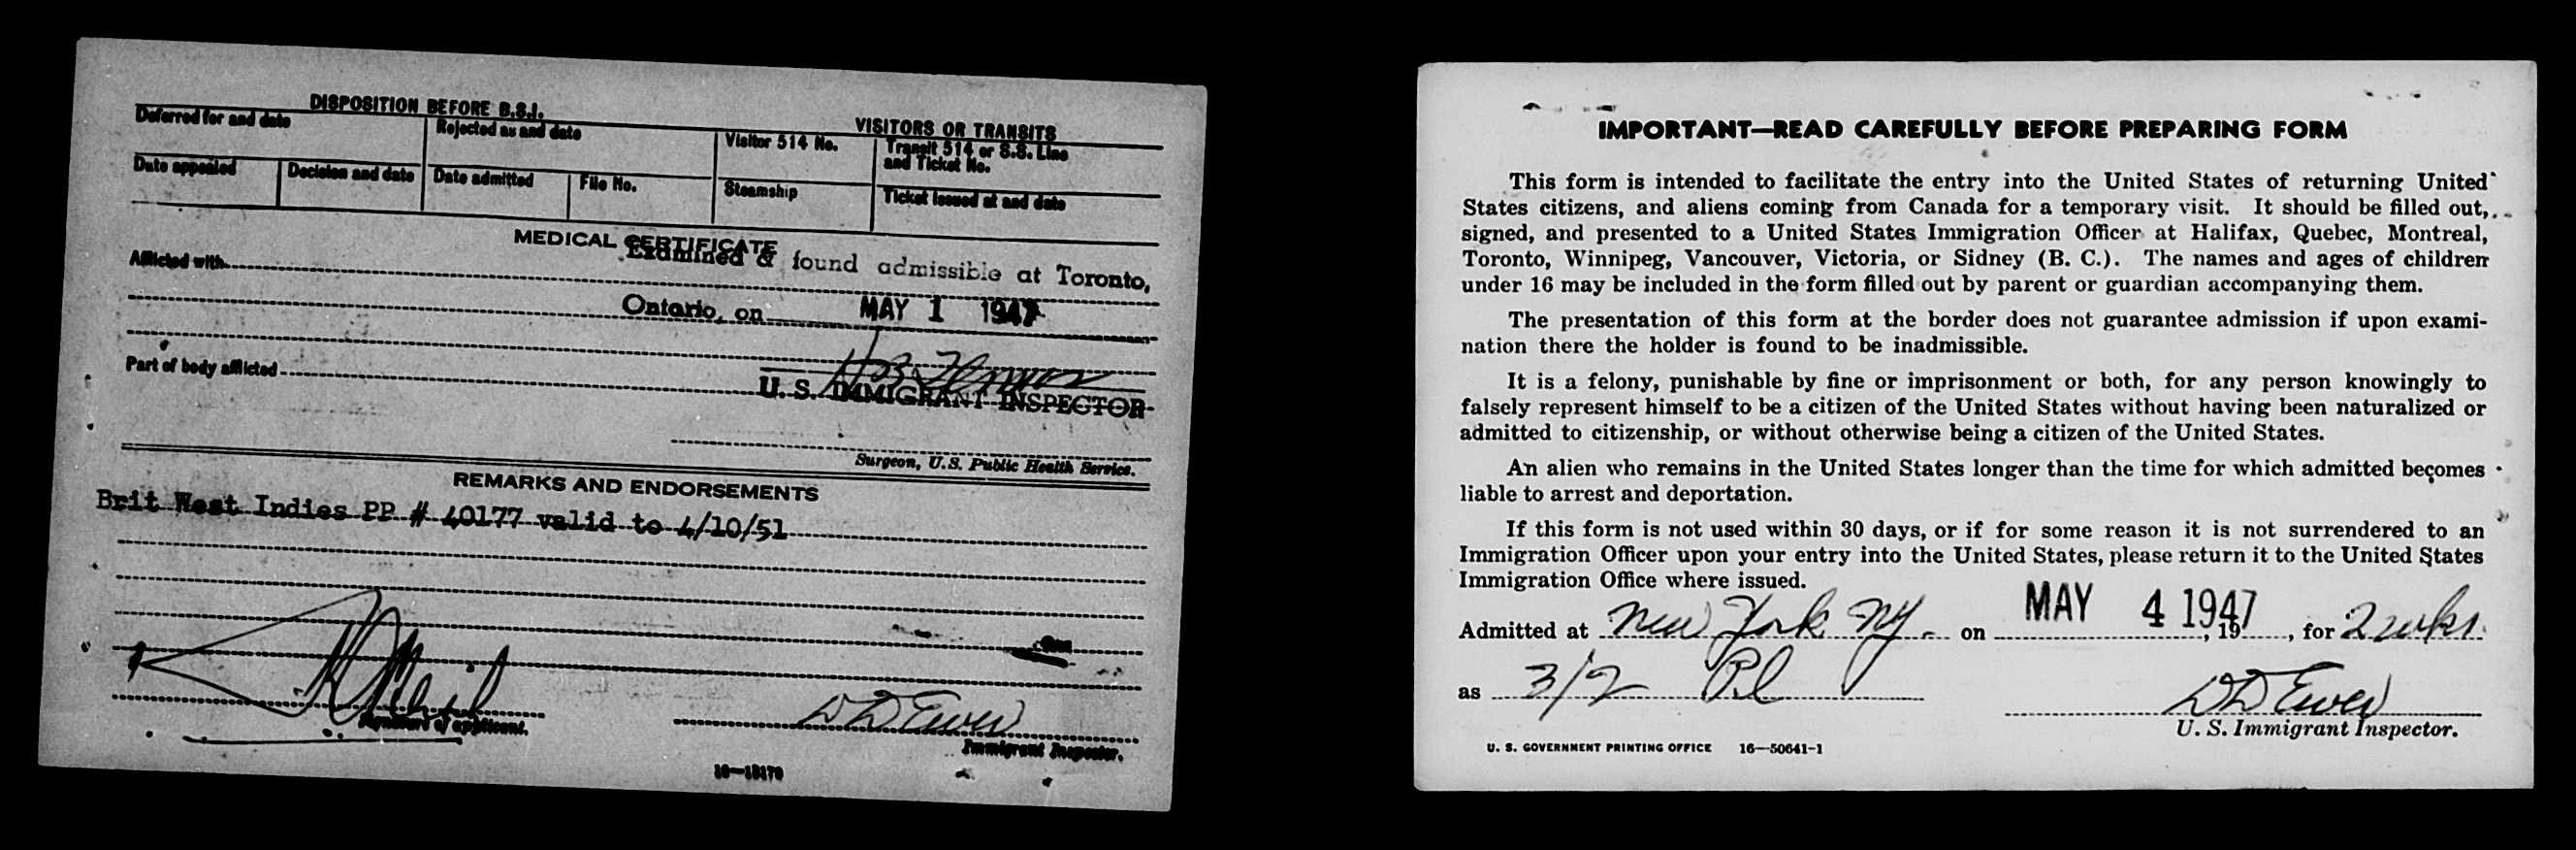 DISPOSITION BEFORE B.S.I.
VISITORS OR TRANSITS
Deferred for and date
Rejected as and date
Visitor 514 No.
Transit 514 or S.S. Line
and Ticket No.
Date appealed
Decision and date
Date admitted
File No.
Steamship
Ticket issued at and date
MEDICAL CERTIFICATE
Examined & found admissible at Toronto,
Afflicted with
Ontario, on MAY 1 1947
Part of body afflicted
U. S. IMMIGRANT INSPECTOR
Surgeon, U.S. Public Health Service.
REMARKS AND ENDORSEMENTS
Brit West Indies PP # 40177 valid to 4/10/51
DD Ewen
Signature of applicant.
Immigrant Inspector.
16—13170
IMPORTANT—READ CAREFULLY BEFORE PREPARING FORM
This form is intended to facilitate the entry into the United States of returning United
States citizens, and aliens coming from Canada for a temporary visit. It should be filled out,
signed, and presented to a United States Immigration Officer at Halifax, Quebec, Montreal,
Toronto, Winnipeg, Vancouver, Victoria, or Sidney (B. C.). The names and ages of children
under 16 may be included in the form filled out by parent or guardian accompanying them.
The presentation of this form at the border does not guarantee admission if upon exami-
nation there the holder is found to be inadmissible.
It is a felony, punishable by fine or imprisonment or both, for any person knowingly to
falsely represent himself to be a citizen of the United States without having been naturalized or
admitted to citizenship, or without otherwise being a citizen of the United States.
An alien who remains in the United States longer than the time for which admitted becomes
liable to arrest and deportation.
If this form is not used within 30 days, or if for some reason it is not surrendered to an
Immigration Officer upon your entry into the United States, please return it to the United States
Immigration Office where issued.
Admitted at New York NY. on MAY 4 1947, 19, for 2 wks.
as 3/2 Pl
DD Ewen
U. S. Immigrant Inspector.
U. S. GOVERNMENT PRINTING OFFICE 16—50641-1